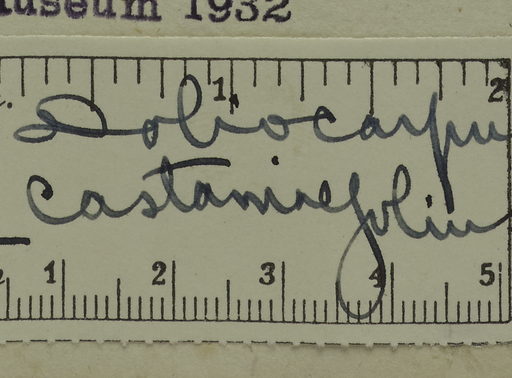 Museum 1932
1 2
Doliocarpu
castaneifoliu
1 2 3 4 5